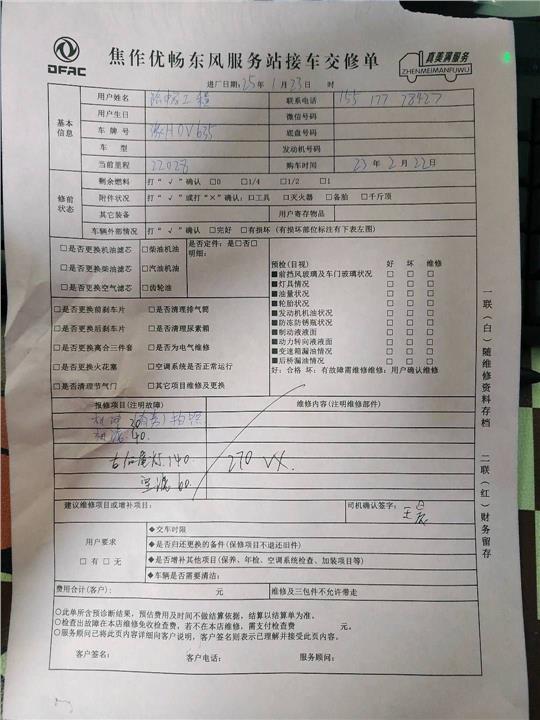 DFAC
焦作优畅东风服务站接车交修单
真美满服务
ZHENMEIMANFUWU
进厂日期:25年1月23日 时
基本信息
用户姓名
联系电话 155 177 78427
用户生日
微信号码
车牌号 豫HOV635
底盘号码
车 型
发动机号码
当前里程 22028
购车时间 23年2月22日
修前状态
剩余燃料 打“√”确认 □0 □1/4 □1/2 □1
附件状况 打“√”或打“×”确认:□工具 □灭火器 □备胎 □千斤顶
其它装备
用户寄存物品
车辆外部情况 打“√”确认 □完好 □有损坏(有损坏部位标注有下表左图)
□是否更换机油滤芯 □柴油机油
□是否更换柴油滤芯 □汽油机油
□是否更换空气滤芯 □齿轮油
是否定件:是□否□
明细:
□是否更换前刹车片 □是否清理排气筒
□是否更换后刹车片 □是否清理尿素箱
□是否更换离合三件套 □是否为电气维修
□是否更换火花塞 □空调系统是否正常运行
□是否清理节气门 □其它项目维修及更换
预检(目视) 好 坏 维修
■前挡风玻璃及车门玻璃状况 □ □ □
■灯具情况 □ □ □
■油量状况 □ □ □
■轮胎状况 □ □ □
■发动机机油状况 □ □ □
■防冻防锈瓶状况 □ □ □
■制动液液面 □ □ □
■动力转向液液面 □ □ □
■变速箱漏油情况 □ □ □
■后桥漏油情况 □ □ □
好:合格 坏:有故障需维修维修:用户确认维修
报修项目(注明故障)
维修内容(注明维修部件)
机滤 40.
右后尾灯.140
空滤 60.
270 VX.
建议维修项目或增补项目:
司机确认签字:
用户要求
□有 □无
◆交车时限
◆是否归还更换的备件(保修项目不退还旧件)
◆是否增补其他项目(保养、年检、空调系统检查、加装项目等)
◆车辆是否需要清洁:
费用合计(客户): 元
维修及三包件不允许带走
○此单所含预诊断结果,预估费用及时间不做结算依据,结算以结算单为准。
○检查出故障在本店维修免收检查费,若不在本店维修,需支付检查费 元。
○服务顾问已将此页内容详细向客户说明,客户签名则表示已理解并接受此页内容。
客户签名: 客户电话: 服务顾问:
一联(白)随维修资料存档
二联(红)财务留存